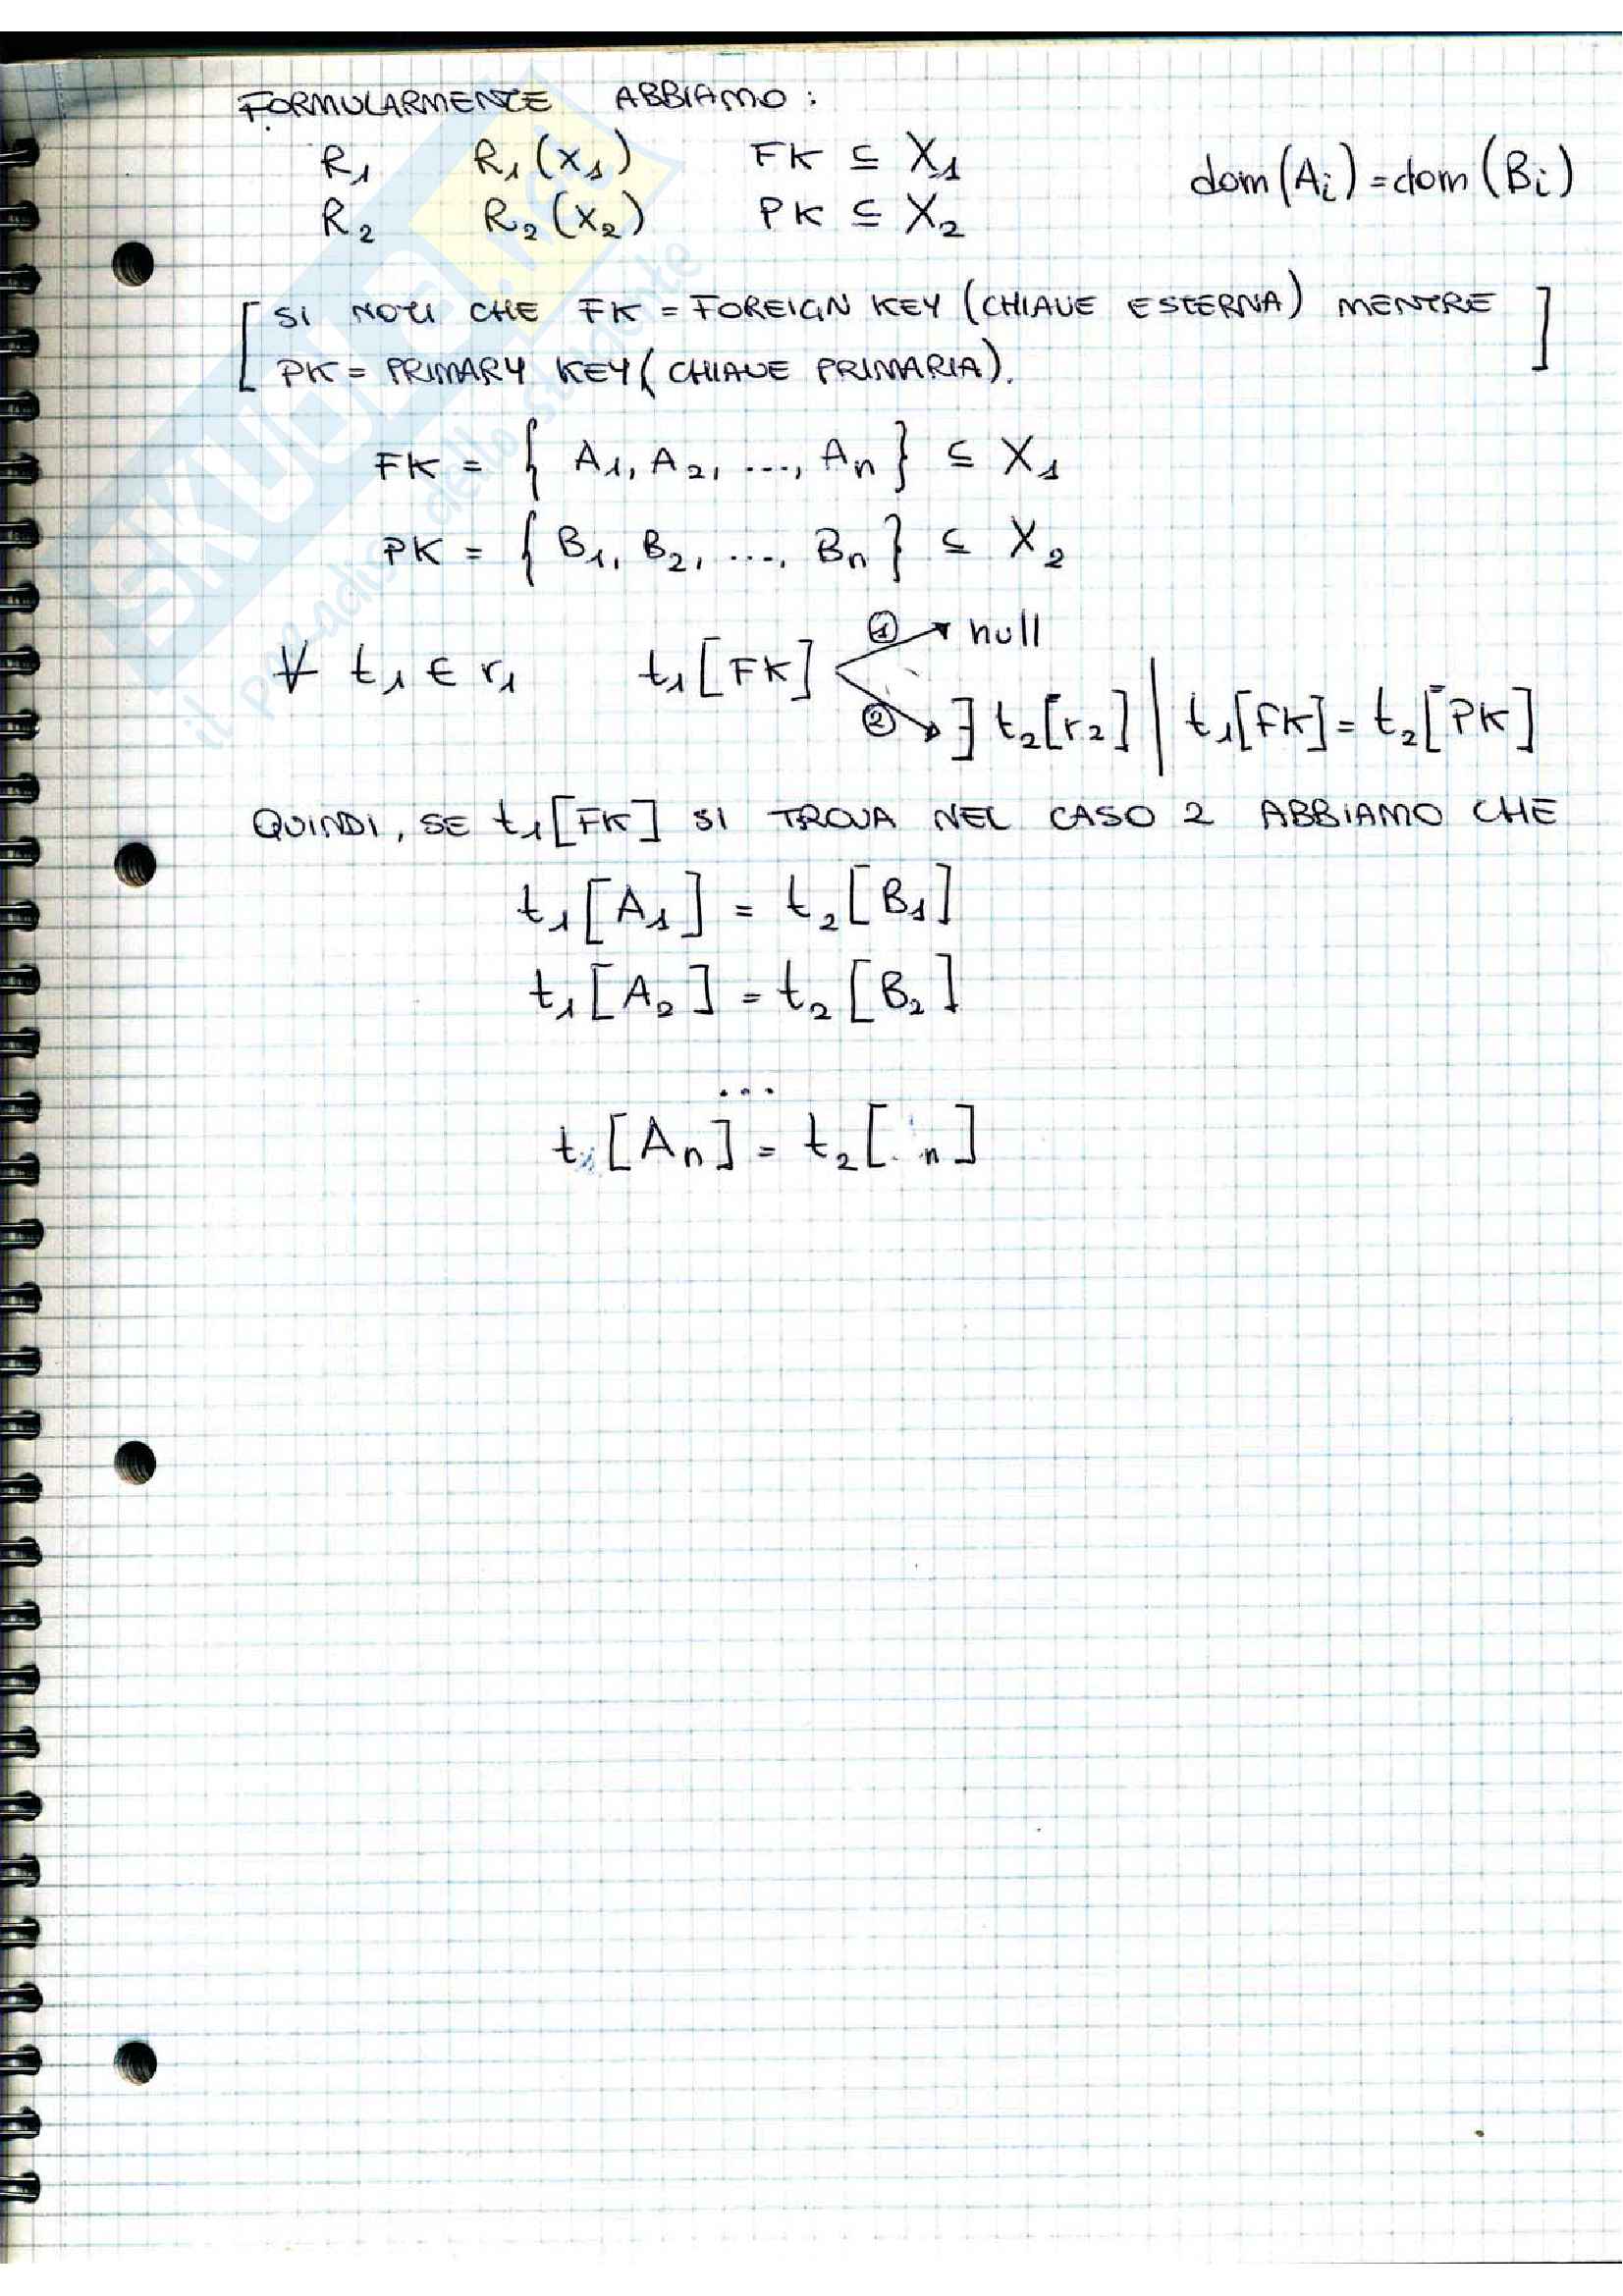 FORMULARMENTE ABBIAMO:
R₁ R₁(X₁) FK ⊆ X₁ dom(Aᵢ) = dom(Bᵢ)
R₂ R₂(X₂) PK ⊆ X₂
[SI NOTI CHE FK = FOREIGN KEY (CHIAVE ESTERNA) MENTRE
PK = PRIMARY KEY (CHIAVE PRIMARIA).]
FK = { A₁, A₂, ..., Aₙ } ⊆ X₁
PK = { B₁, B₂, ..., Bₙ } ⊆ X₂
① → null
∀ t₁ ∈ r₁ t₁[FK]
② → ∃ t₂[r₂] | t₁[FK] = t₂[PK]
QUINDI, SE t₁[FK] SI TROVA NEL CASO 2 ABBIAMO CHE
t₁[A₁] = t₂[B₁]
t₁[A₂] = t₂[B₂]
...
t [Aₙ] = t₂[ ₙ]
SKUOLA.net
il paradiso dello studente